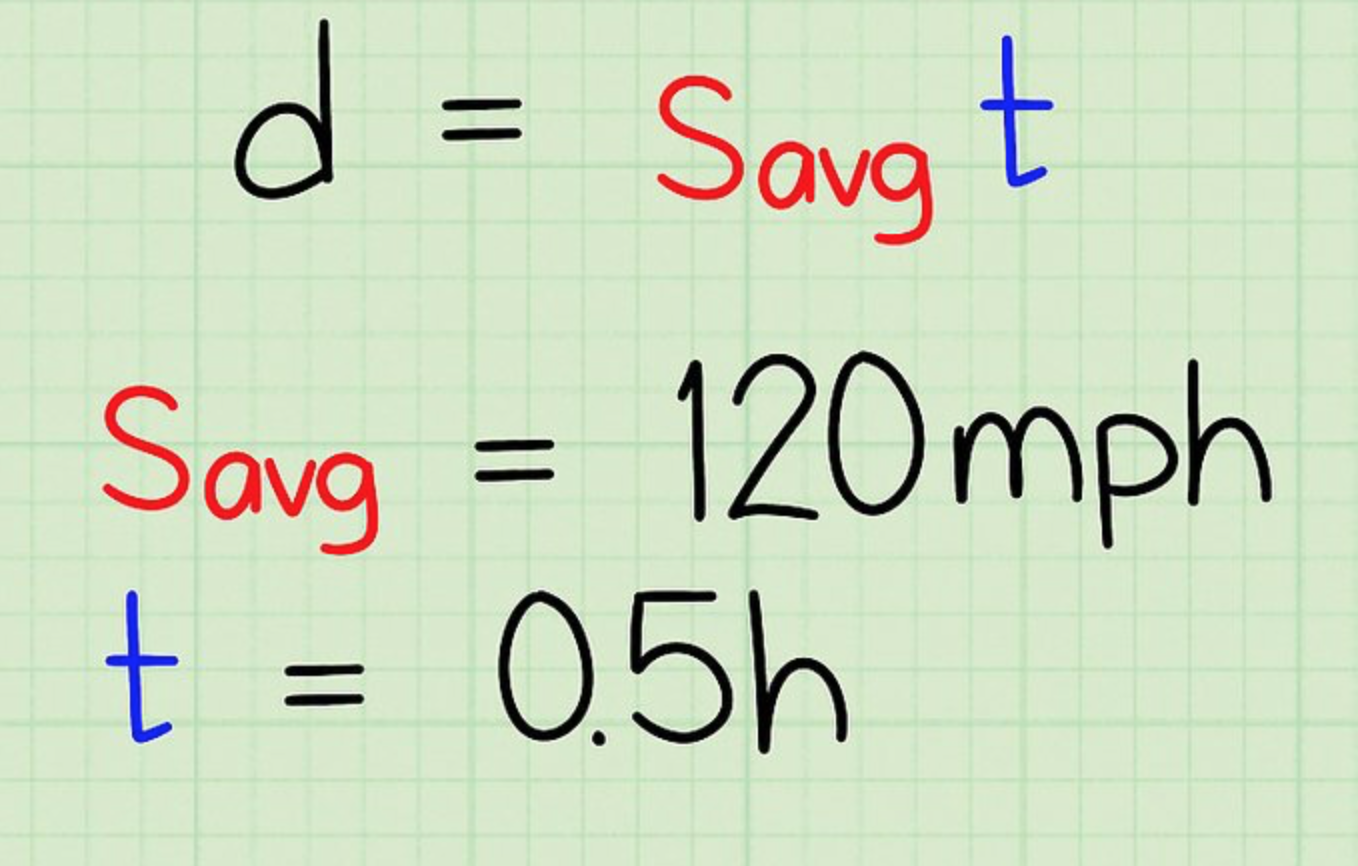 d = Savg t
Savg = 120mph
t = 0.5h